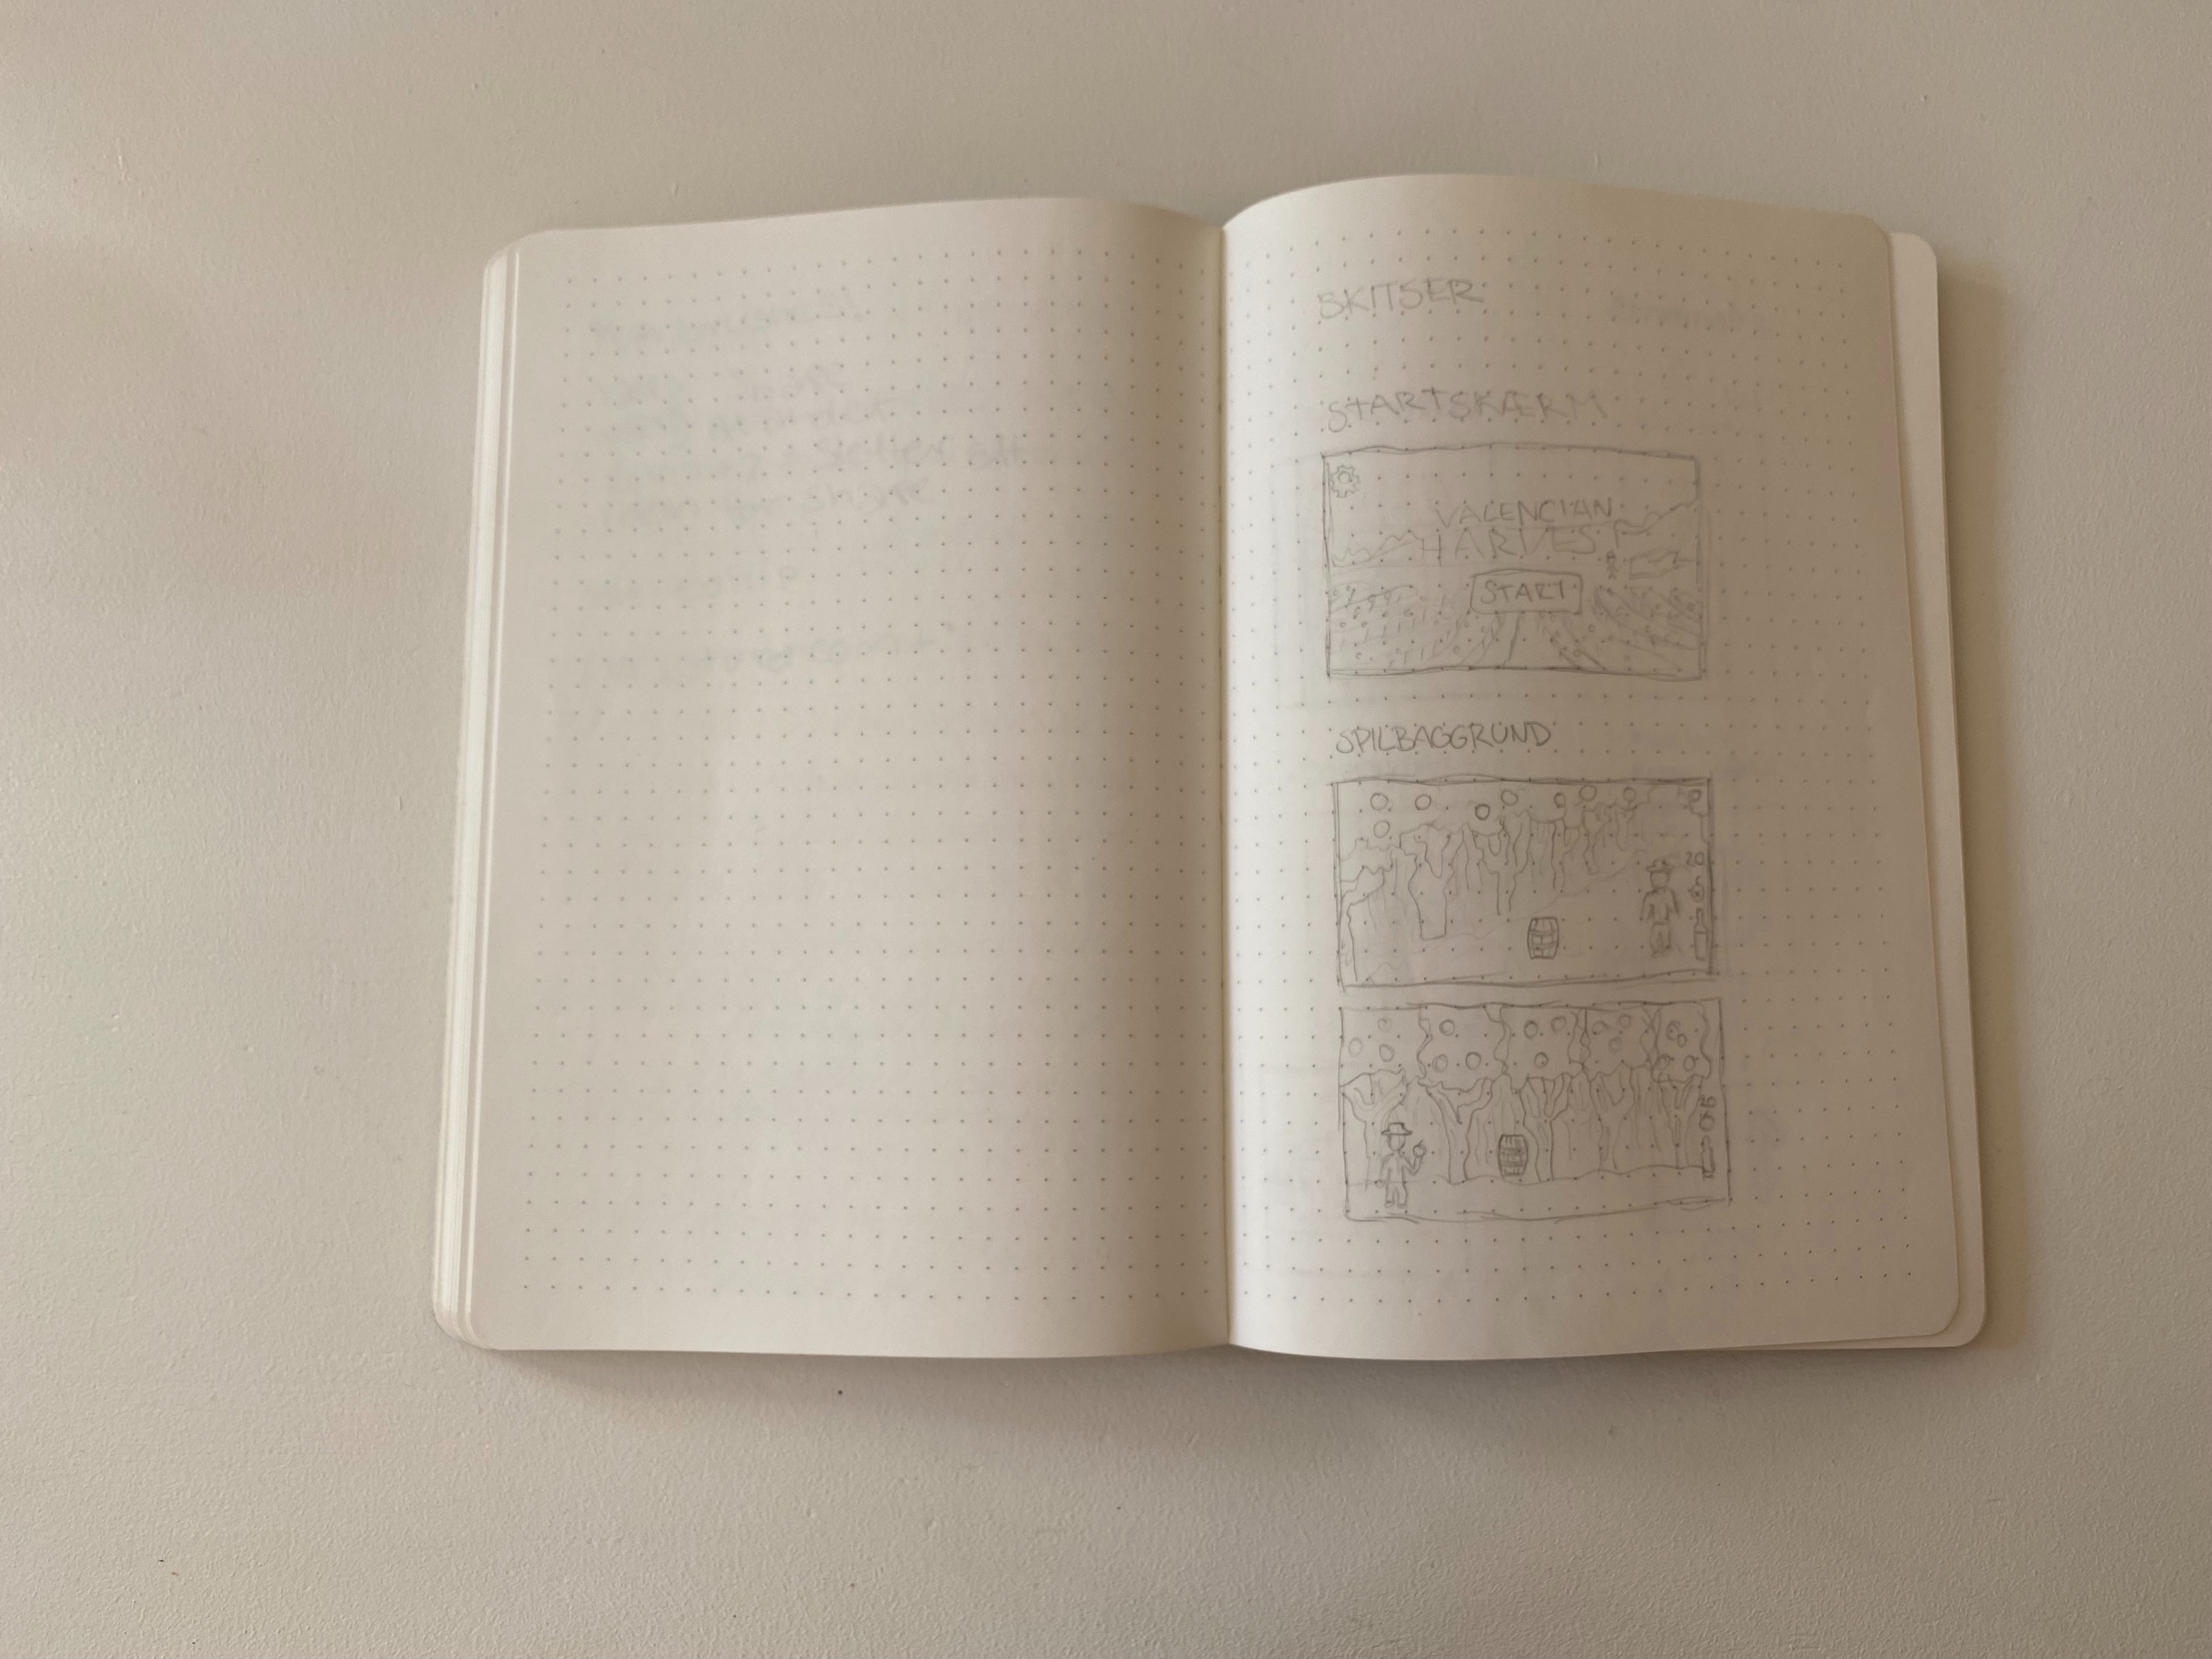 SKITSER
STARTSKÆRM
VALENCIAN
HARVEST
START
SPILBAGGRUND
20